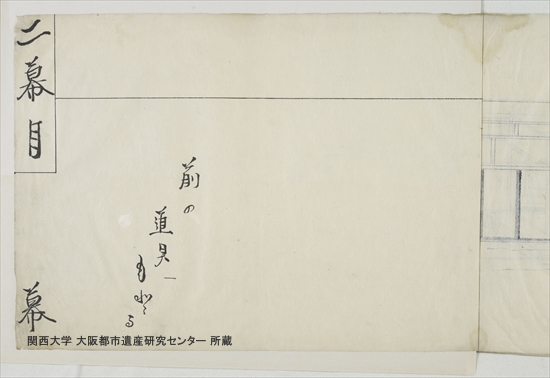 二幕目
幕
前の
道具一
もどる
関西大学 大阪都市遺産研究センター 所蔵